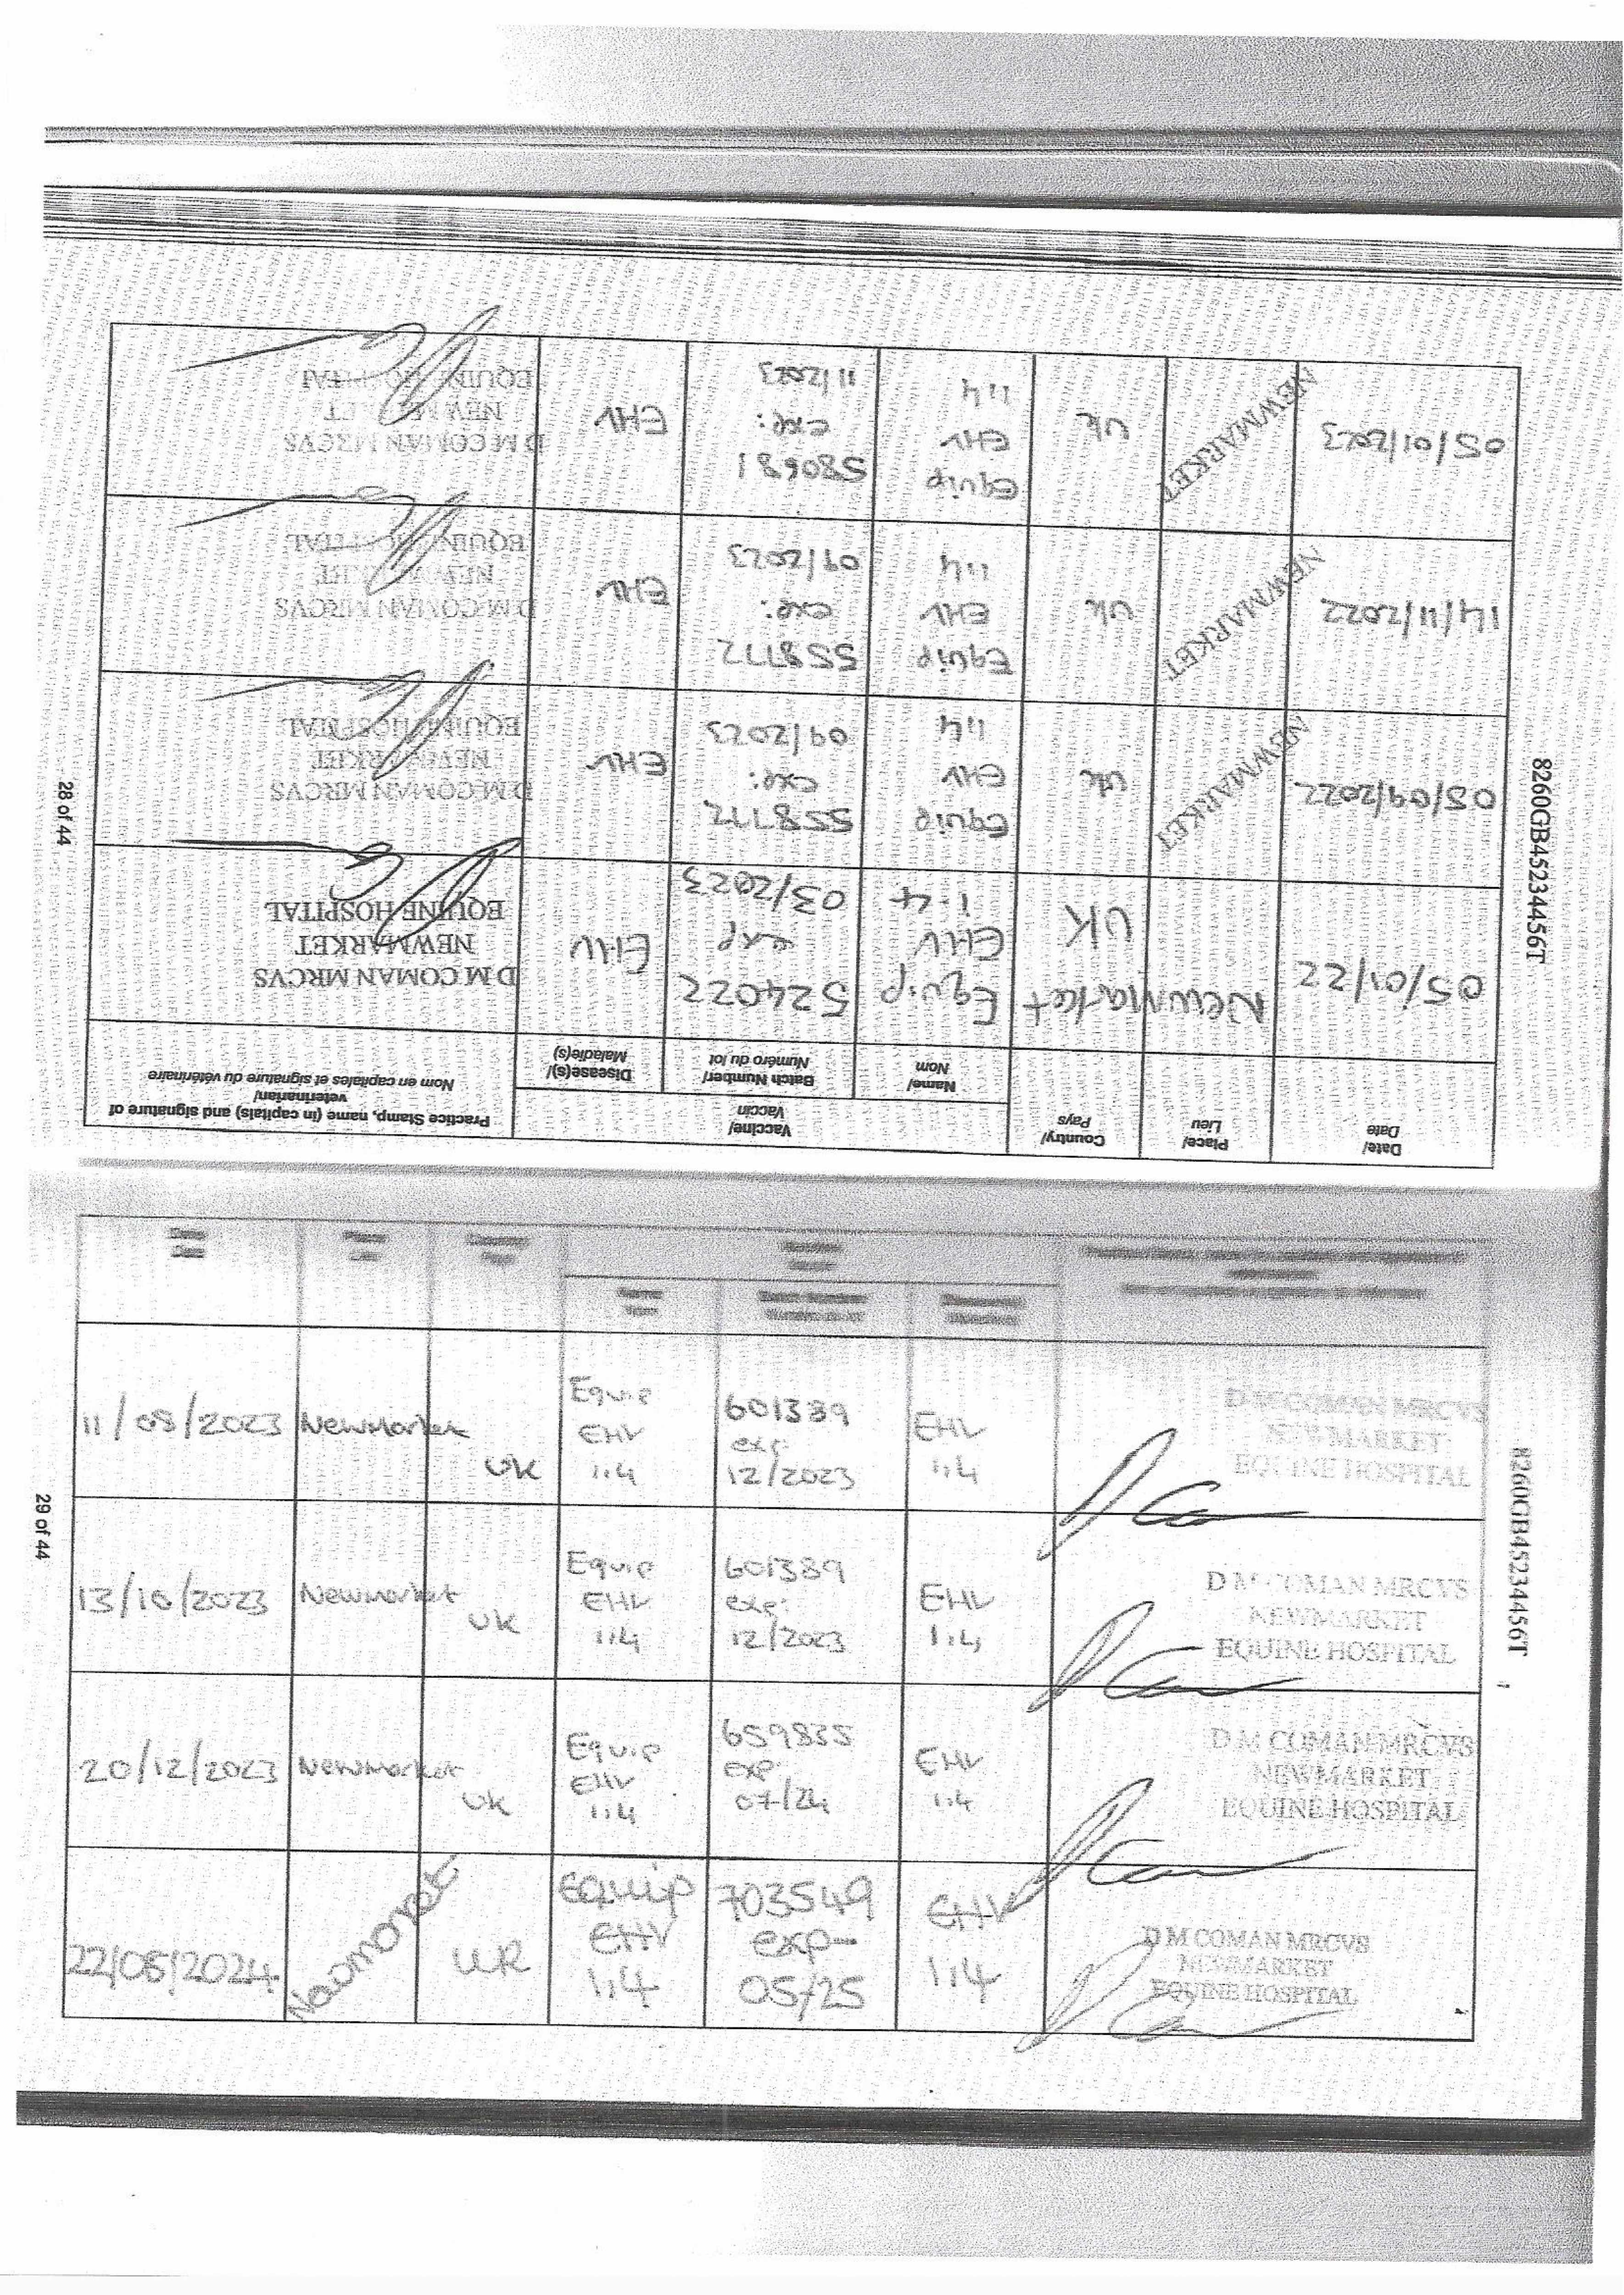 Date/
Date
Place/
Lieu
Country/
Pays
Vaccine/
Vaccin
Name/
Nom
Batch Number/
Numéro du lot
Disease(s)/
Maladie(s)
Practice Stamp, name (in capitals) and signature of
veterinarian/
Nom en capitales et signature du vétérinaire
05/01/22
Newmarket
UK
Equip
EHV
1-4
524022
exp
03/2023
EHV
D M COMAN MRCVS
NEWMARKET
EQUINE HOSPITAL
05/09/2022
NEWMARKET
UK
Equip
EHV
1:4
558772
exp:
09/2023
EHV
D M COMAN MRCVS
NEWMARKET
EQUINE HOSPITAL
14/11/2022
NEWMARKET
UK
Equip
EHV
1:4
558772
exp:
09/2023
EHV
D M COMAN MRCVS
NEWMARKET
EQUINE HOSPITAL
05/01/2023
NEWMARKET
UK
Equip
EHV
1:4
580681
exp:
11/2023
EHV
D M COMAN MRCVS
NEWMARKET
EQUINE HOSPITAL
28 of 44
8260GB45234456T
11/08/2023
Newmarket
UK
Equip
EHV
1:4
601389
exp:
12/2023
EHV
1:4
D M COMAN MRCVS
NEWMARKET
EQUINE HOSPITAL
13/10/2023
Newmarket
UK
Equip
EHV
1:4
601389
exp:
12/2023
EHV
1:4
D M COMAN MRCVS
NEWMARKET
EQUINE HOSPITAL
20/12/2023
Newmarket
UK
Equip
EHV
1:4
659835
exp
07/24
EHV
1:4
D M COMAN MRCVS
NEWMARKET
EQUINE HOSPITAL
22/05/2024
Newmarket
UK
Equip
EHV
1:4
703549
exp-
05/25
EHV
1:4
D M COMAN MRCVS
NEWMARKET
EQUINE HOSPITAL
29 of 44
8260GB45234456T